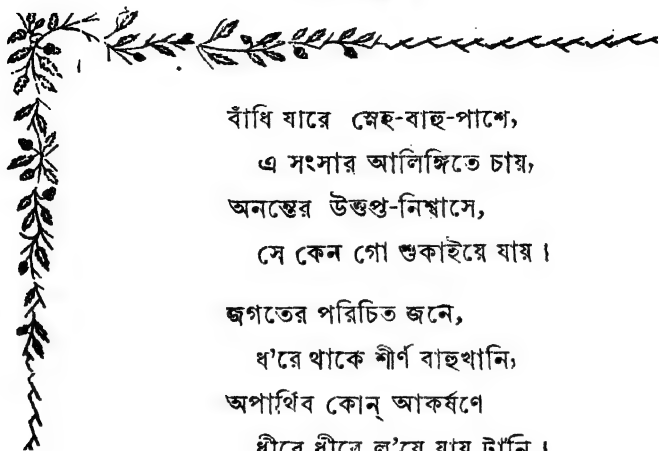 বাঁধি যারে স্নেহ-বাহু-পাশে,
এ সংসার আলিঙ্গিতে চায়,
অনন্তের উত্তপ্ত-নিশ্বাসে,
সে কেন গো শুকাইয়ে যায়।
জগতের পরিচিত জনে,
ধ'রে থাকে শীর্ণ বাহুখানি,
অপার্থিব কোন্ আকর্ষণে
ধীরে ধীরে ল'য়ে যায় টানি।